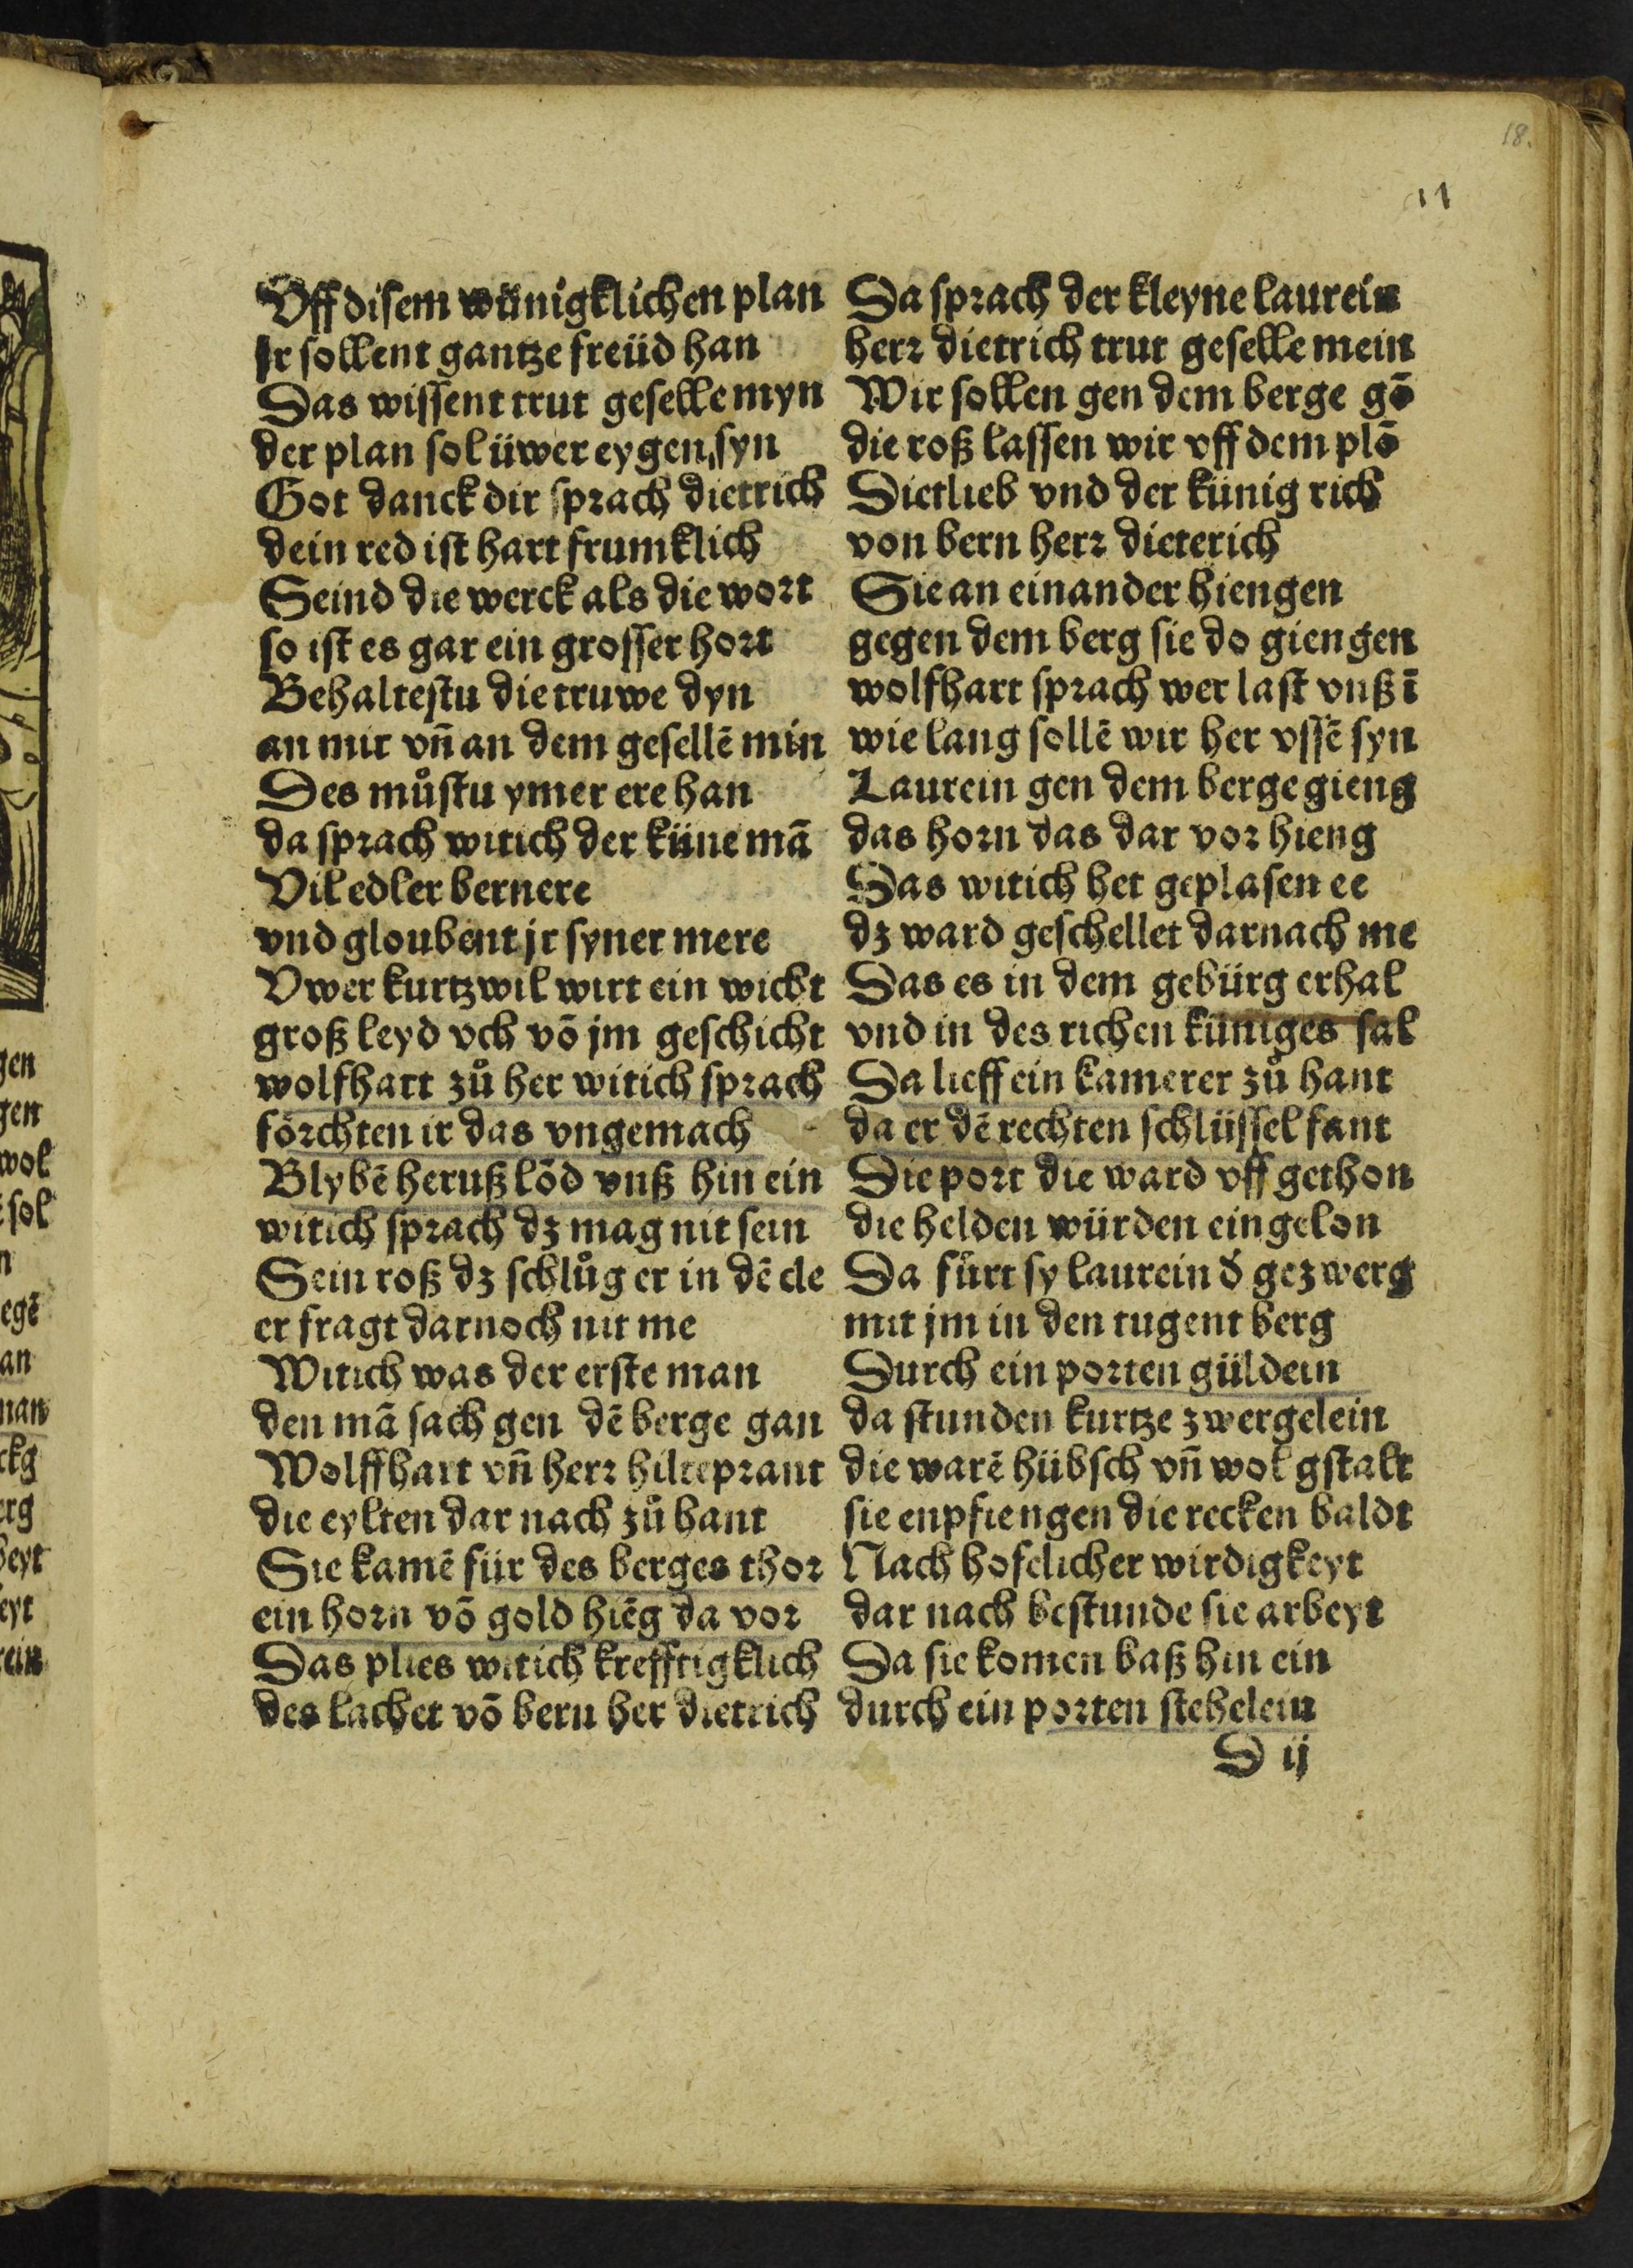 18.
11
Uff disem wünigklichen plan
Ir sollent gantze freüd han
Das wissent trut geselle myn
der plan sol üwer eygen syn
Got danck dir sprach dietrich
dein red ist hart frumklich
Seind die werck als die wort
so ist es gar ein grosser hort
Behaltestu die truwe dyn
an mir vñ an dem gesellē min
Des můstu ymer ere han
da sprach witich der küne mā
Vil edler bernere
vnd gloubent jr syner mere
Vwer kurtzwil wirt ein wicht
groß leyd vch vō jm geschicht
wolfhart zů her witich sprach
förchten ir das vngemach
Blybē heruß lōd vnß hin ein
witich sprach dz mag nit sein
Sein roß dz schlůg er in dē cle
er fragt darnoch nit me
Witich was der erste man
den mā sach gen dē berge gan
Wolffhart vñ herr hilteprant
die eylten dar nach zů hant
Sie kamē für des berges thor
ein horn vō gold hiēg da vor
Das plies witich krefftigklich
des lachet vō bern her dietrich
Da sprach der kleyne laurein
herr dietrich trut geselle mein
Wir sollen gen dem berge gō
die roß lassen wir vff dem plō
Dietlieb vnd der künig rich
von bern herr dieterich
Sie an einander hiengen
gegen dem berg sie do giengen
wolfhart sprach wer last vnß ī
wie lang sollē wir her vssē syn
Laurein gen dem berge gieng
das horn das dar vor hieng
Das witich het geplasen ee
dz ward geschellet darnach me
Das es in dem gebürg erhal
vnd in des richen küniges sal
Da lieff ein kamerer zů hant
da er dē rechten schlüssel fant
Die port die ward vff gethon
die helden würden eingelon
Da fůrt sy laurein d̄ gezwerg
mit jm in den tugent berg
Durch ein porten güldein
da stunden kurtze zwergelein
die warē hübsch vñ wol gstalt
sie enpfiengen die recken baldt
Nach hofelicher wirdigkeyt
dar nach bestunde sie arbeyt
Da sie komen baß hin ein
durch ein porten stehelein
D ij